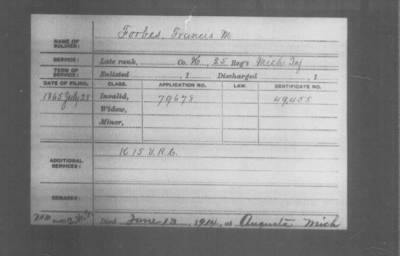 NAME OF SOLDIER: Forbes, Francis M.
SERVICE: Late rank, Co. K, 25 Reg't Mich Inf
TERM OF SERVICE: Enlisted , 1 Discharged , 1
DATE OF FILING. CLASS. APPLICATION NO. LAW. CERTIFICATE NO.
1865 July 28 Invalid, 79678 49455
Widow,
Minor,
ADDITIONAL SERVICES: K 15 V.R.C.
REMARKS:
Died June 13, 1914, at Augusta Mich